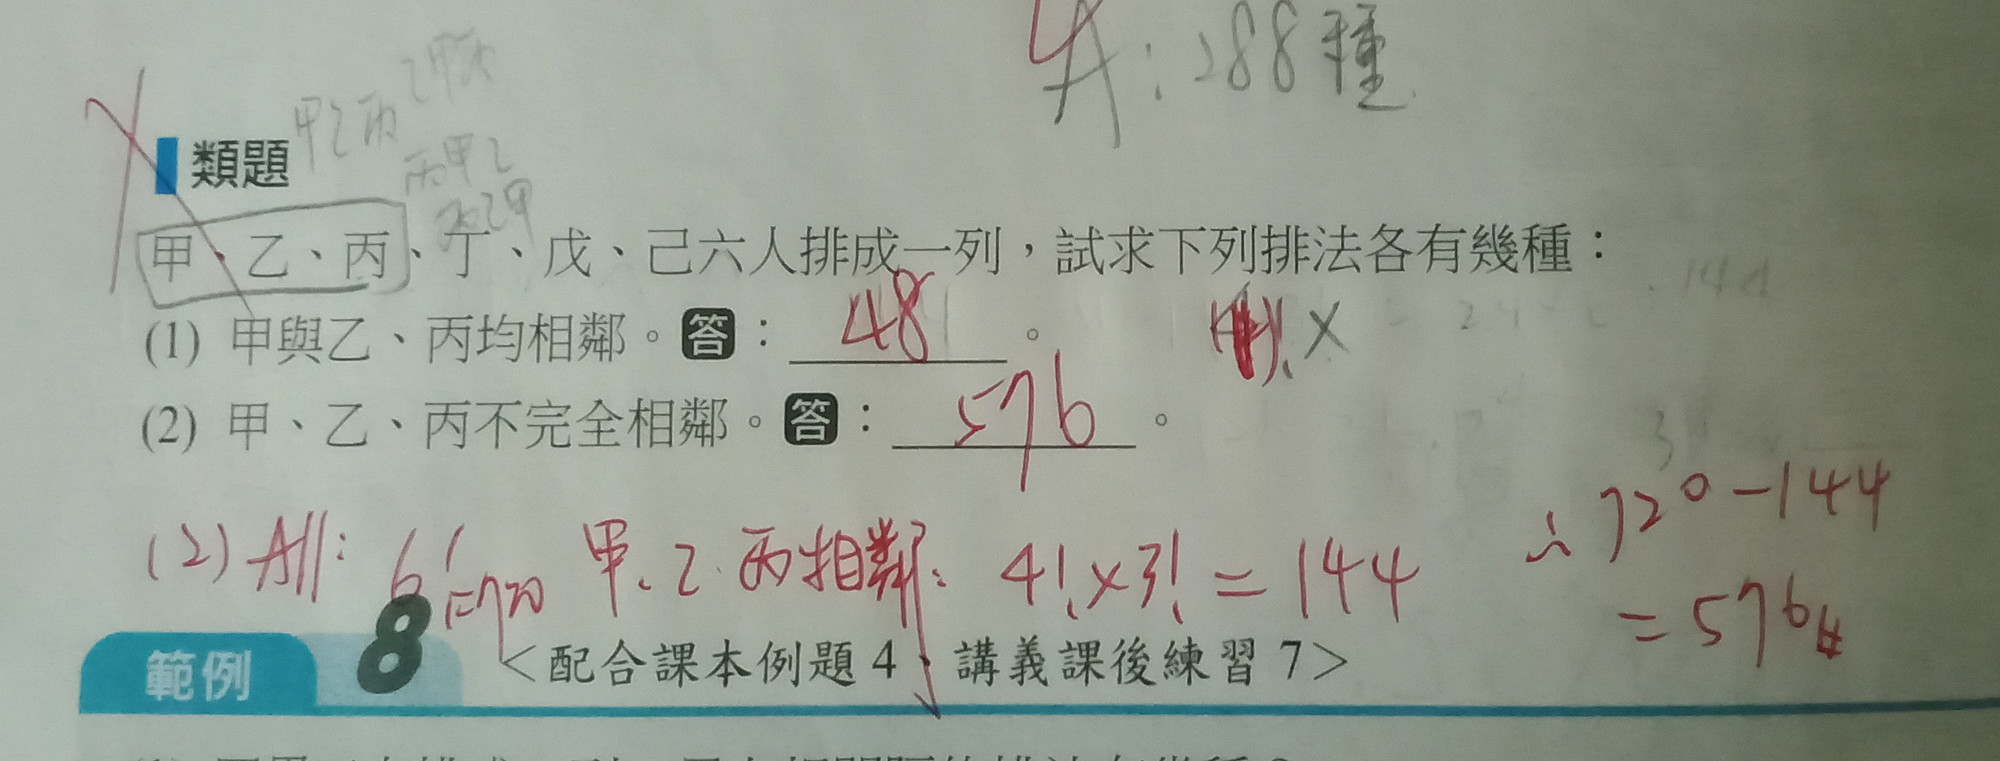 A:288種
乙甲丙
甲乙丙
類題
丙甲乙
丙乙甲
甲、乙、丙、丁、戊、己六人排成一列，試求下列排法各有幾種：
(1) 甲與乙、丙均相鄰。答：48。
(2) 甲、乙、丙不完全相鄰。答：576。
(2) All: 6!=720 甲、乙、丙相鄰: 4!×3!=144 ∴720-144
=576#
範例 8 <配合課本例題4、講義課後練習7>